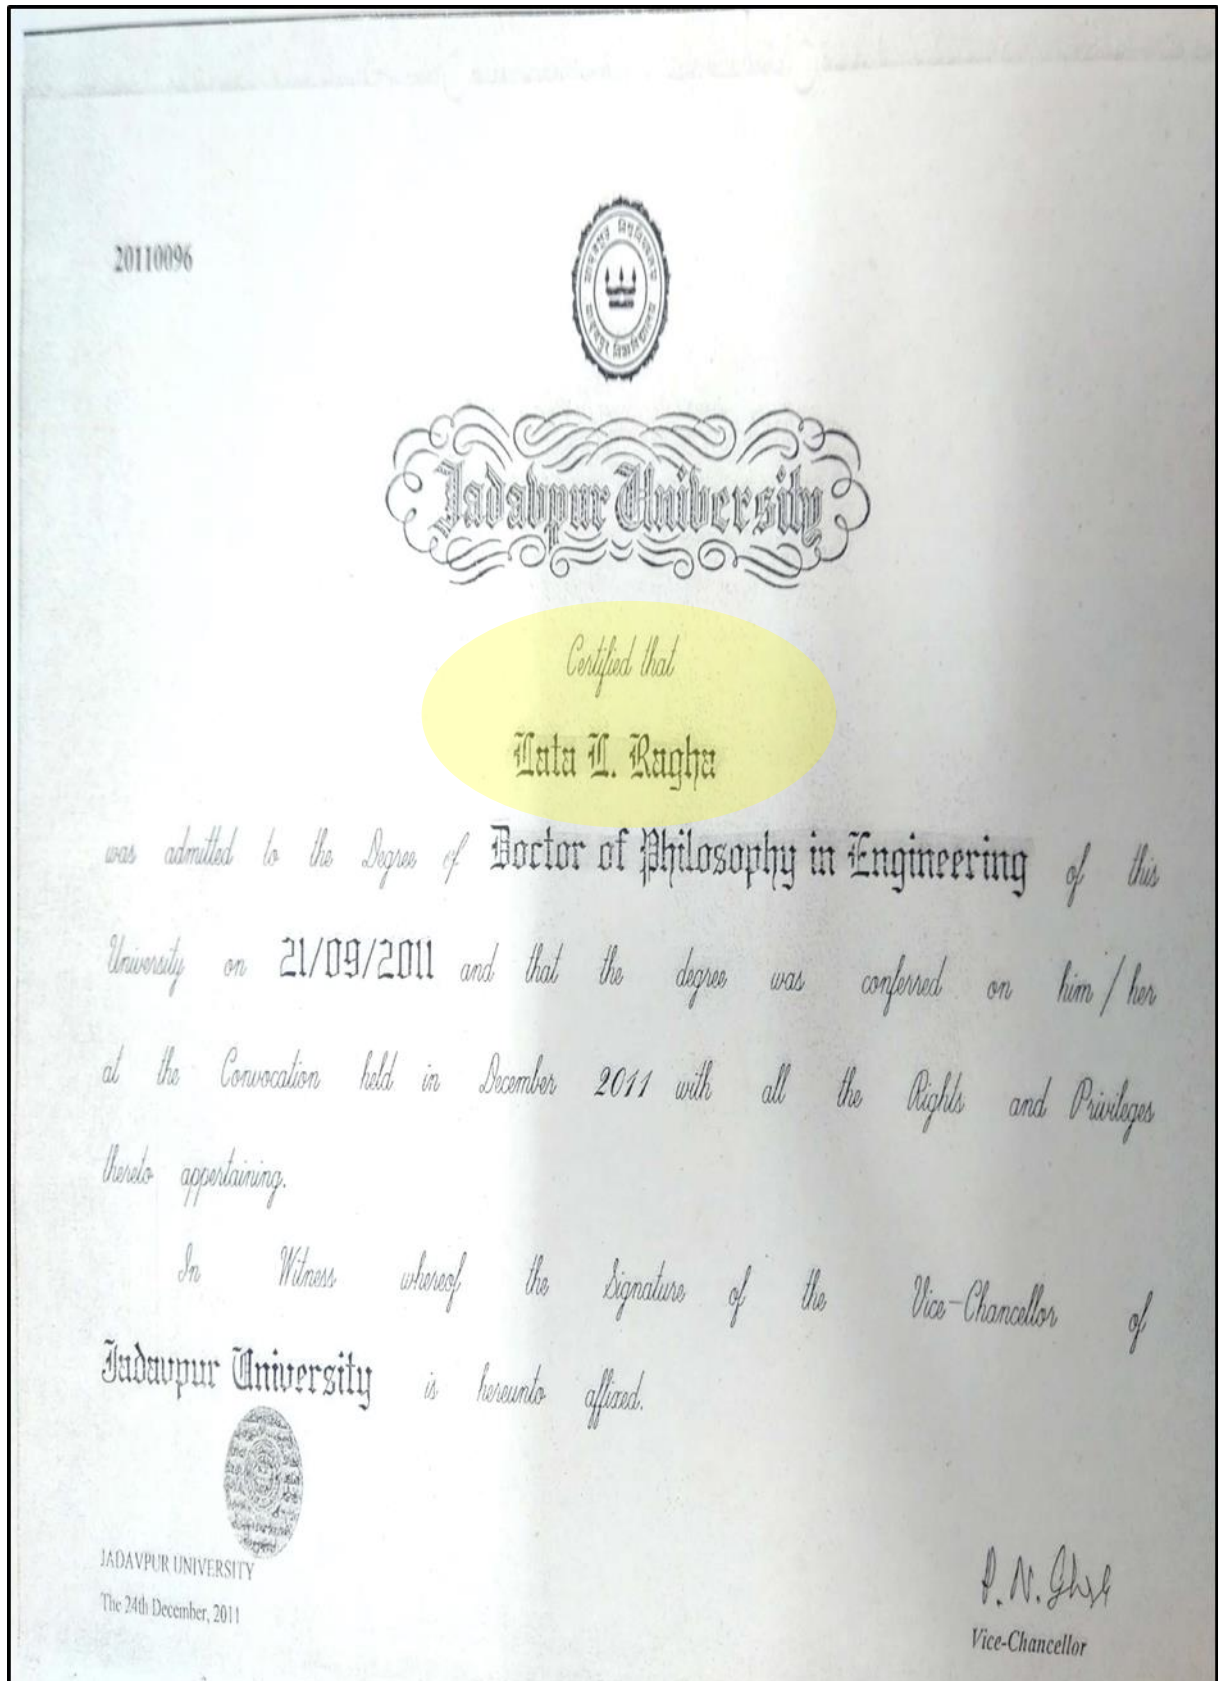 20110096
যাদবপুর বিশ্ববিদ্যালয়
Jadavpur University
Certified that
Lata L. Ragha
was admitted to the Degree of Doctor of Philosophy in Engineering of this
University on 21/09/2011 and that the degree was conferred on him / her
at the Convocation held in December 2011 with all the Rights and Privileges
thereto appertaining.
In Witness whereof the Signature of the Vice-Chancellor of
Jadavpur University is hereunto affixed.
JADAVPUR UNIVERSITY
The 24th December, 2011
P. N. Ghosh
Vice-Chancellor